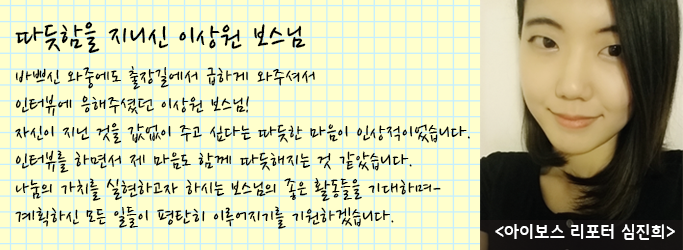 따듯함을 지니신 이상원 보스님
바쁘신 와중에도 출장길에서 급하게 와주셔서
인터뷰에 응해주셨던 이상원 보스님!
자신이 지닌 것을 값없이 주고 싶다는 따듯한 마음이 인상적이었습니다.
인터뷰를 하면서 제 마음도 함께 따듯해지는 것 같았습니다.
나눔의 가치를 실현하고자 하시는 보스님의 좋은 활동들을 기대하며-
계획하신 모든 일들이 평탄히 이루어지기를 기원하겠습니다.
<아이보스 리포터 심진희>